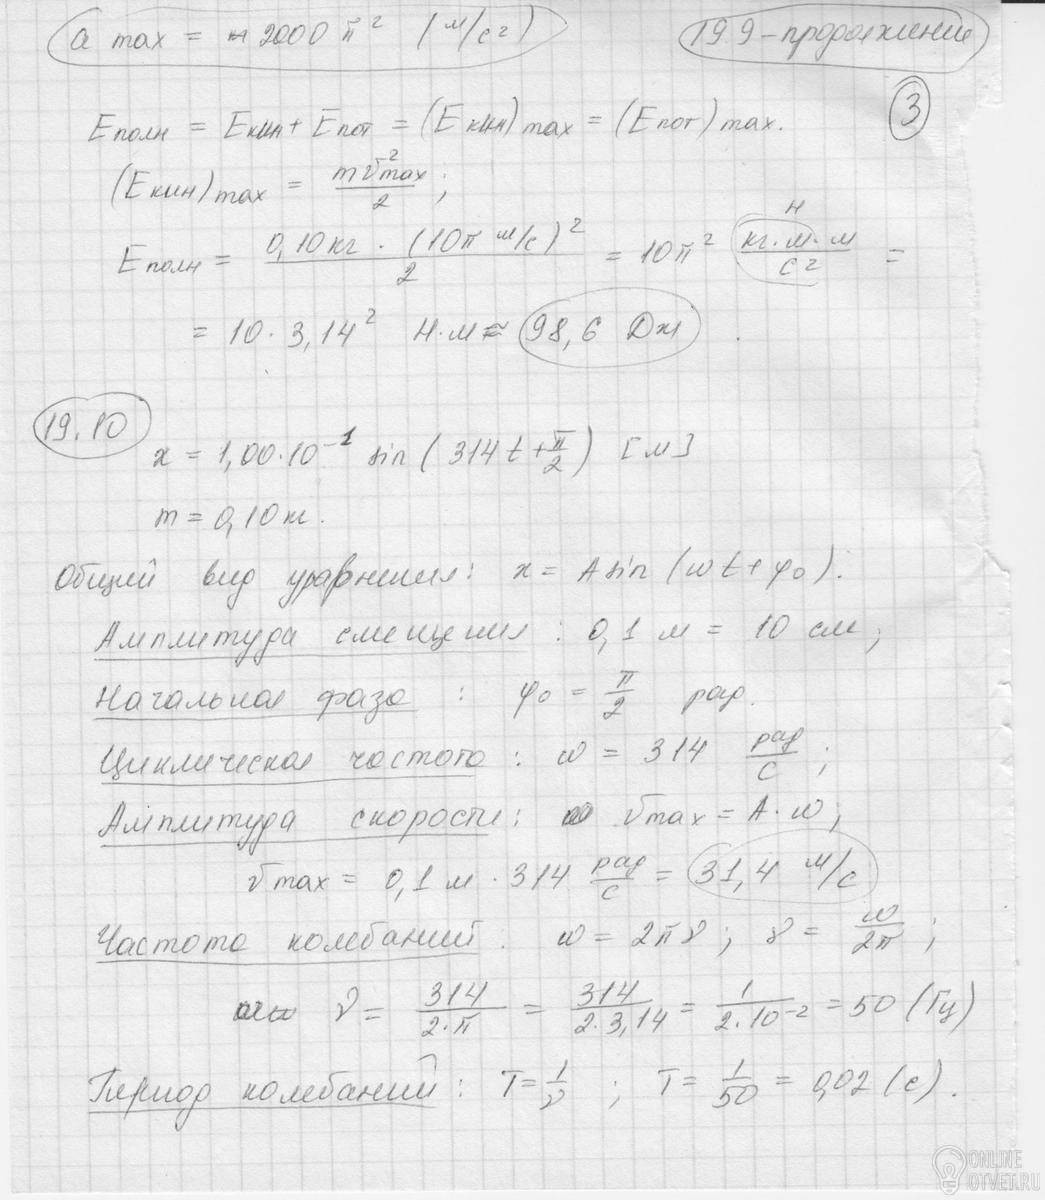 a max = 2000 π² (м/с²)
19 9 - продолжение
3
Eполн = Eкин + Eпот = (Eкин)max = (Eпот)max.
(Eкин)max = mv²max / 2 ;
Н
Eполн = 0,10кг · (10π м/с)² / 2 = 10π² кг·м·м / с² =
= 10 · 3,14² Н·м ≈ 98,6 Дж
19.10
x = 1,00·10⁻¹ sin (314t + π/2) [м]
m = 0,10кг.
Общий вид уравнения: x = A sin (ωt + φ₀).
Амплитуда смещения : 0,1 м = 10 см ;
Начальная фаза : φ₀ = π/2 рад.
Циклическая частота : ω = 314 рад/с ;
Амплитуда скорости : vmax = A · ω ;
vmax = 0,1 м · 314 рад/с = 31,4 м/с
Частота колебаний . ω = 2πν ; ν = ω/2π ;
ν = 314 / 2·π = 314 / 2·3,14 = 1 / 2·10⁻² = 50 (Гц)
Период колебаний : T = 1/ν ; T = 1/50 = 0,02 (с) .
ONLINE
OTVET.RU